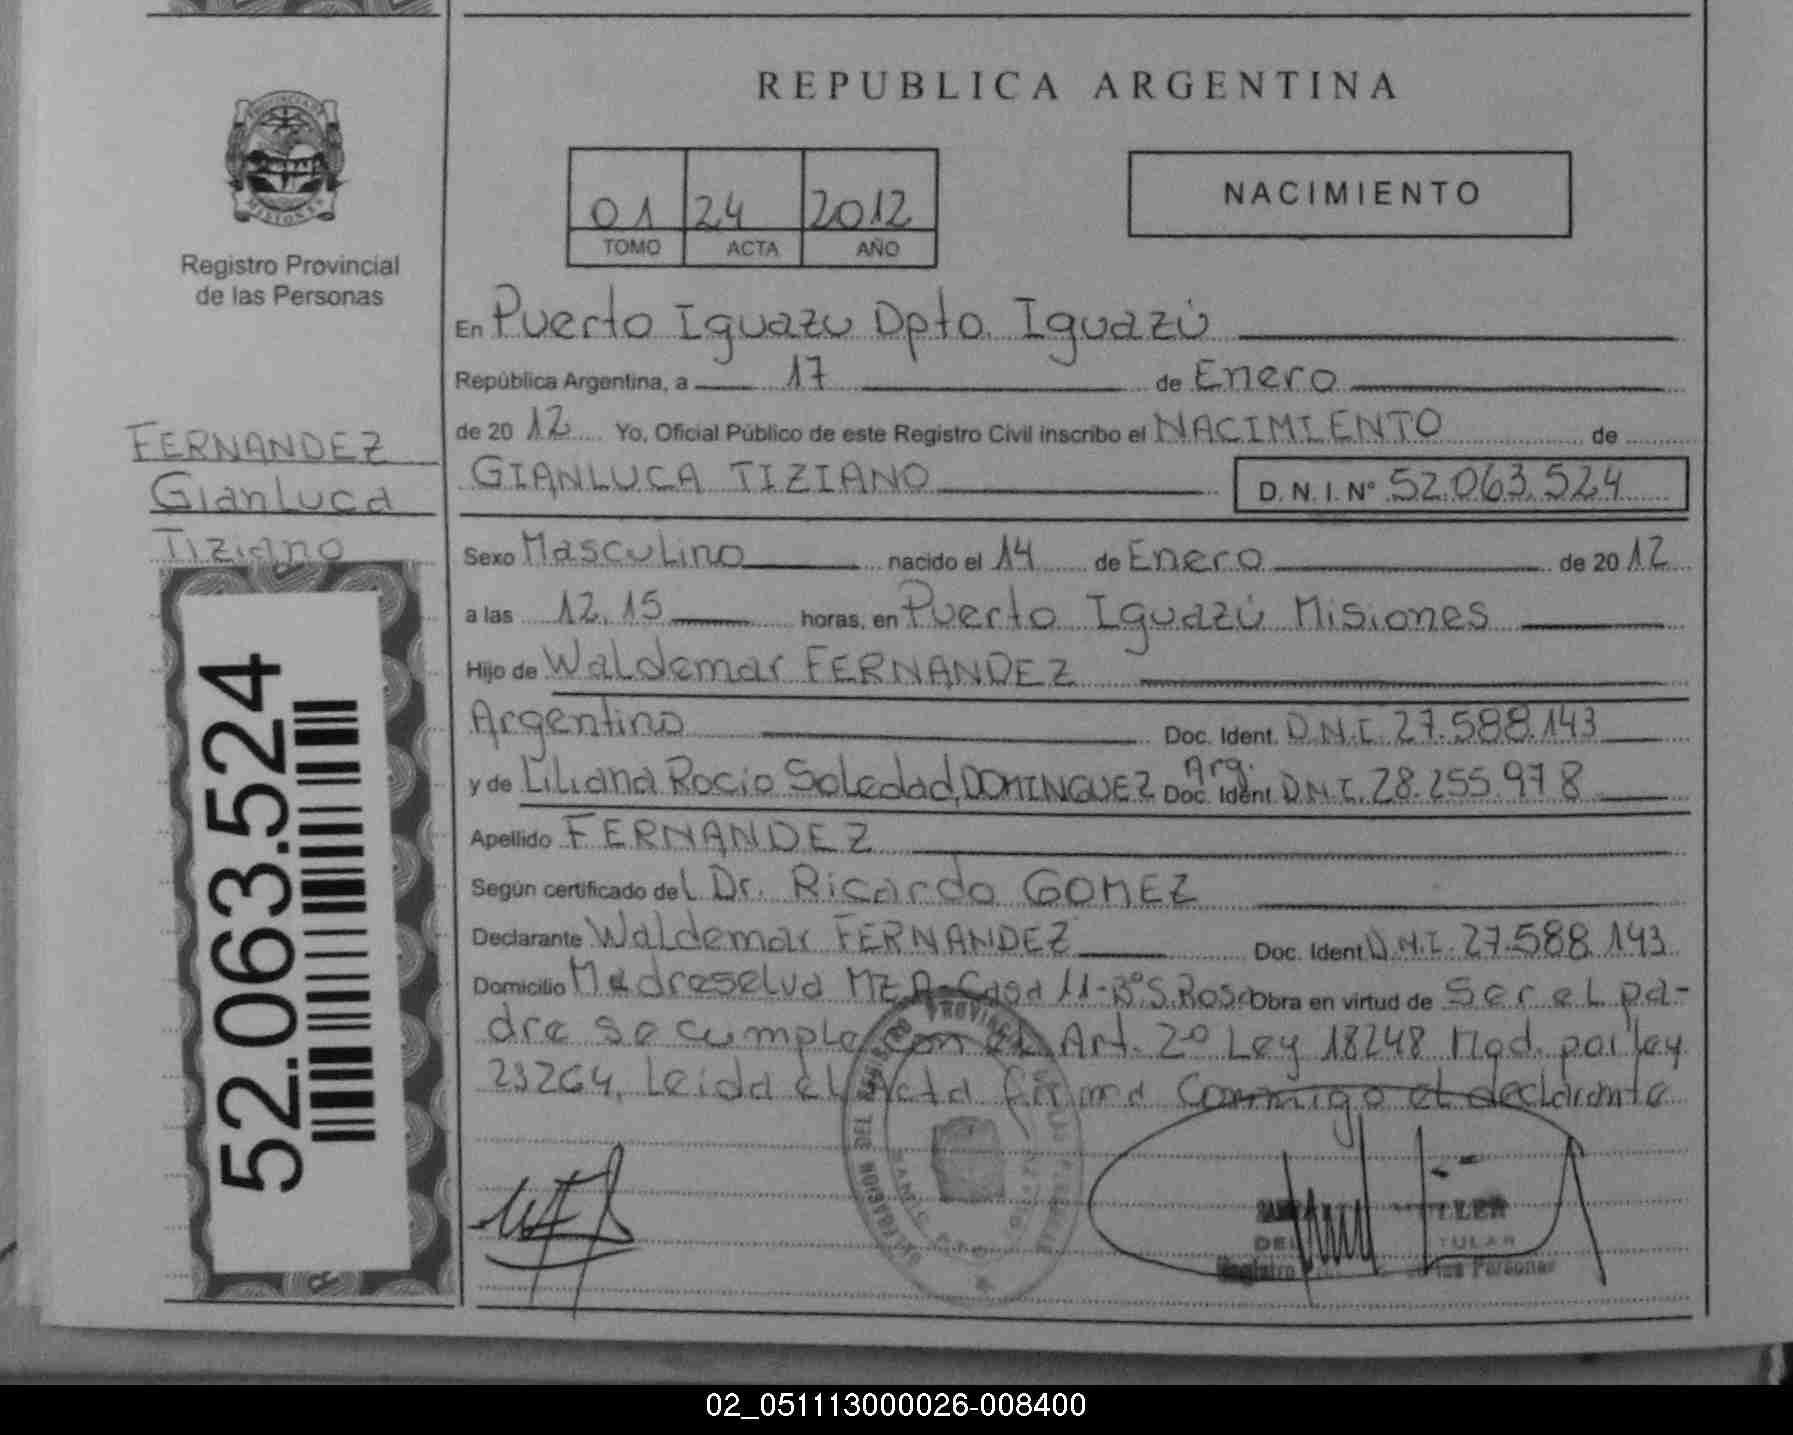 REPUBLICA ARGENTINA
PROVINCIA DE
MISIONES
Registro Provincial
de las Personas
01 24 2012
TOMO ACTA AÑO
NACIMIENTO
En Puerto Iguazu Dpto. Iguazú
República Argentina, a 17 de Enero
de 20 12 Yo, Oficial Público de este Registro Civil inscribo el NACIMIENTO de
GIANLUCA TIZIANO D. N. I. Nº 52.063.524
FERNANDEZ
Gianluca
Tiziano
52.063.524
Sexo Masculino nacido el 14 de Enero de 20 12
a las 12.15 horas, en Puerto Iguazú Misiones
Hijo de Waldemar FERNANDEZ
Argentino Doc. Ident. D.N.I. 27.588.143
y de Liliana Rocio Soledad DOMINGUEZ Arg. Doc. Ident D.N.I. 28.255.978
Apellido FERNANDEZ
Según certificado del Dr. Ricardo GOMEZ
Declarante Waldemar FERNANDEZ Doc. Ident D.N.I. 27.588.143
Domicilio Madreselva MZ A Casa 11-Bº S. Rosa Obra en virtud de Ser el pa-
dre se cumple con el Art. 2º Ley 18248 Mod. por ley
23264, Leida el Acta firma Conmigo el declarante
TULAR
Registro de las Personas
02_051113000026-008400